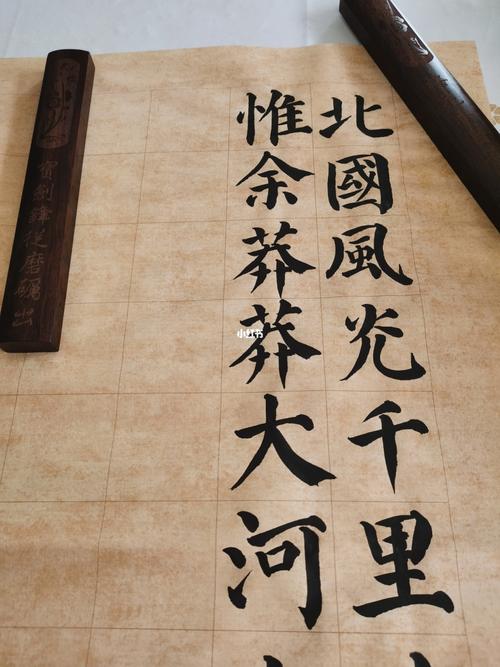 北國風光千里
惟余莽莽大河
寶劍鋒從磨礪出
小红书